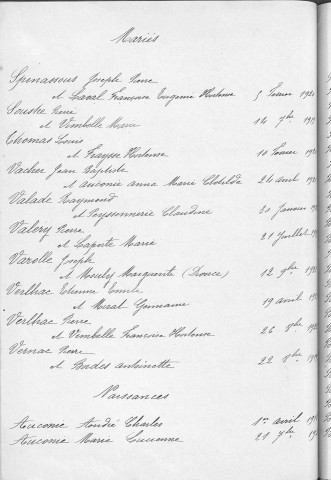 Mariés
Spinassous Joseph Pierre
et Laval Françoise Eugénie Hortense 5 février 192
Soustre Pierre
et Vimbelle Marie 14 7bre 191
Thomas Louis
et Fraysse Hortense 10 février 192
Vacher Jean Baptiste
et Auconie Anne Marie Clotilde 24 avril 192
Valade Raymond
et Peyssonnerie Claudine 20 Janvier 192
Valéry Pierre
et Laporte Marie 21 Juillet 19
Varolle Joseph
et Mouly Marguerite (Divorce) 12 9bre 19
Verlhac Etienne Emile
et Mirat Germaine 19 avril 192
Verlhac Pierre
et Vimbelle Françoise Hortense 26 8bre 192
Vernac Pierre
et Bordes Antoinette 22 8bre 19
Naissances
Auconie André Charles 1er avril 19
Auconie Marie Lucienne 21 7bre 19